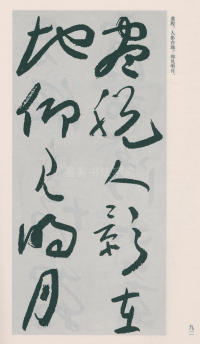 盡脱人影在
地仰見明月
盡脱，人影在地，仰見明月，
九二